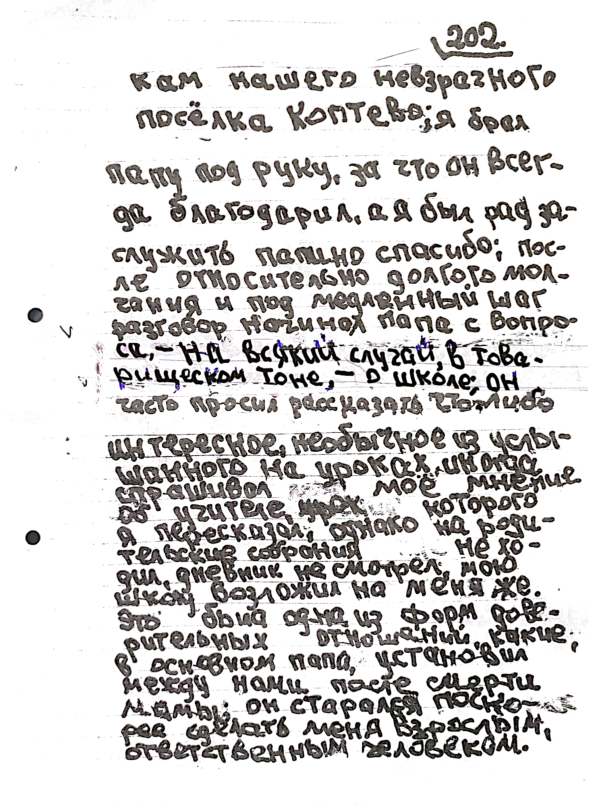 202.
кам нашего невзрачного
посёлка Коптево; я брал
папу под руку, за что он всег-
да благодарил, а я был рад за-
служить папино спасибо; пос-
ле относительно долгого мол-
чания и под медленный шаг
разговор начинал папа с вопро-
са, – на всякий случай, в това-
рищеском тоне, – о школе, он
часто просил рассказать что-либо
интересное, необычное из услы-
шанного на уроках, иногда
спрашивал моё мнение
об учителе, урок которого
я пересказал, однако на роди-
тельские собрания не хо-
дил, дневник не смотрел, мою
школу возложил на меня же.
Это была одна из форм дове-
рительных отношений, какие,
в основном папа, установил
между нами после смерти
мамы; он старался поско-
рее сделать меня взрослым,
ответственным человеком.